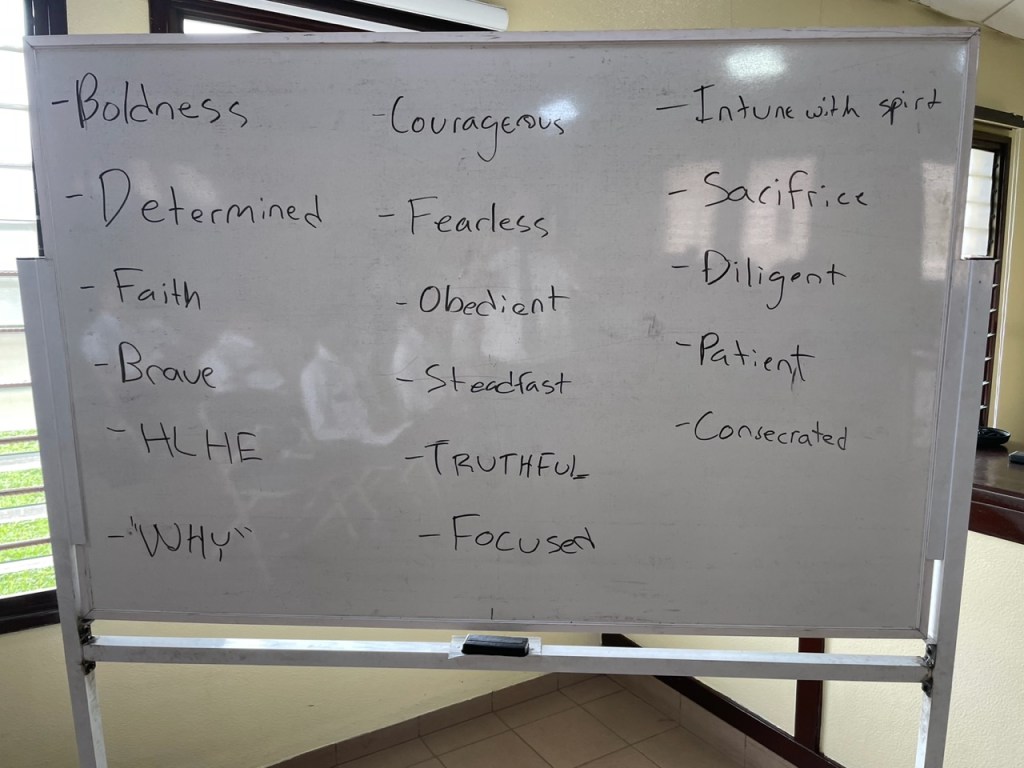 - Boldness
- Determined
- Faith
- Brave
- HLHE
- "WHY"
- Courageous
- Fearless
- Obedient
- Steadfast
- TRUTHFUL
- Focused
- Intune with spirt
- Sacifrice
- Diligent
- Patient
- Consecrated